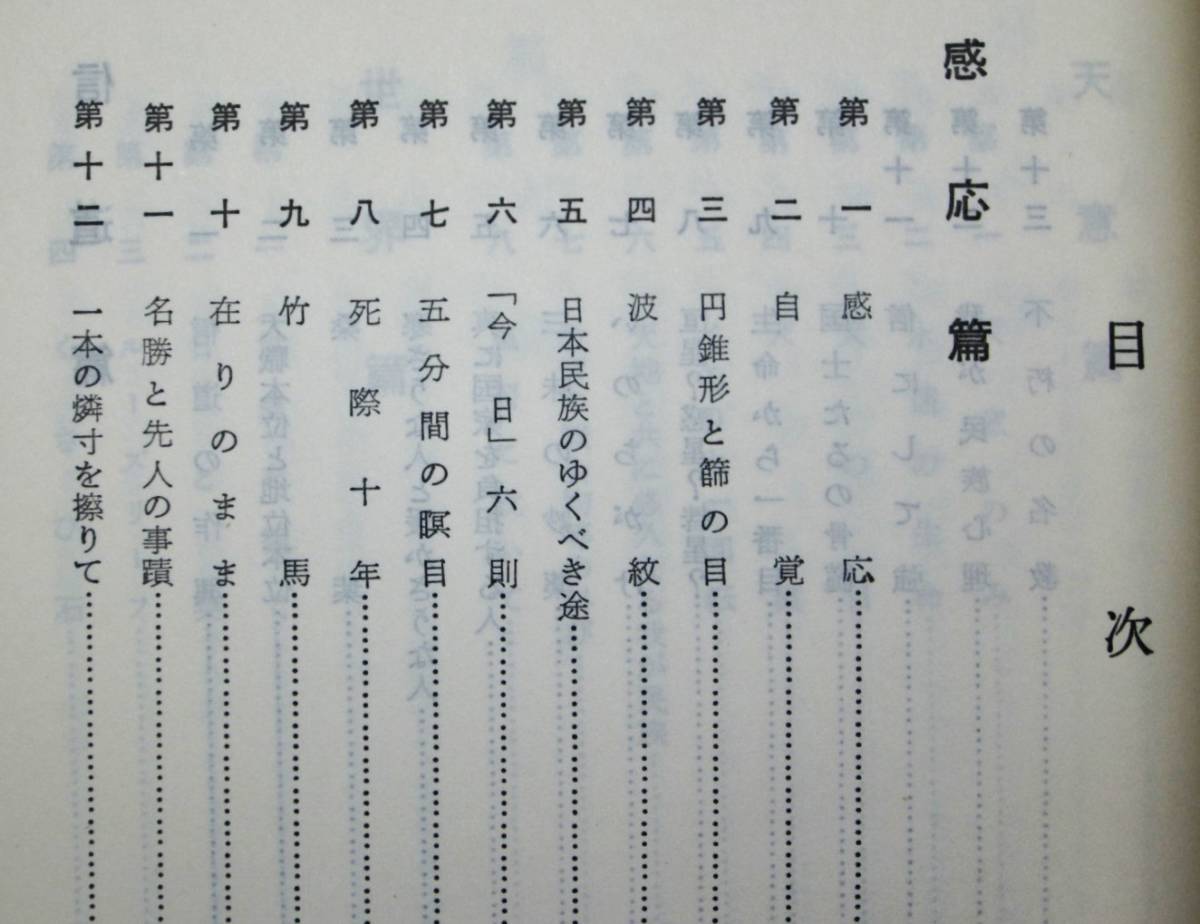 目次
感応篇
第一 感応
第二 自覚
第三 円錐形と篩の目
第四 波紋
第五 日本民族のゆくべき途
第六 「今日」六則
第七 五分間の瞑目
第八 死際十年
第九 竹馬
第十 在りのまま
第十一 名勝と先人の事蹟
第十二 一本の燐寸を擦りて